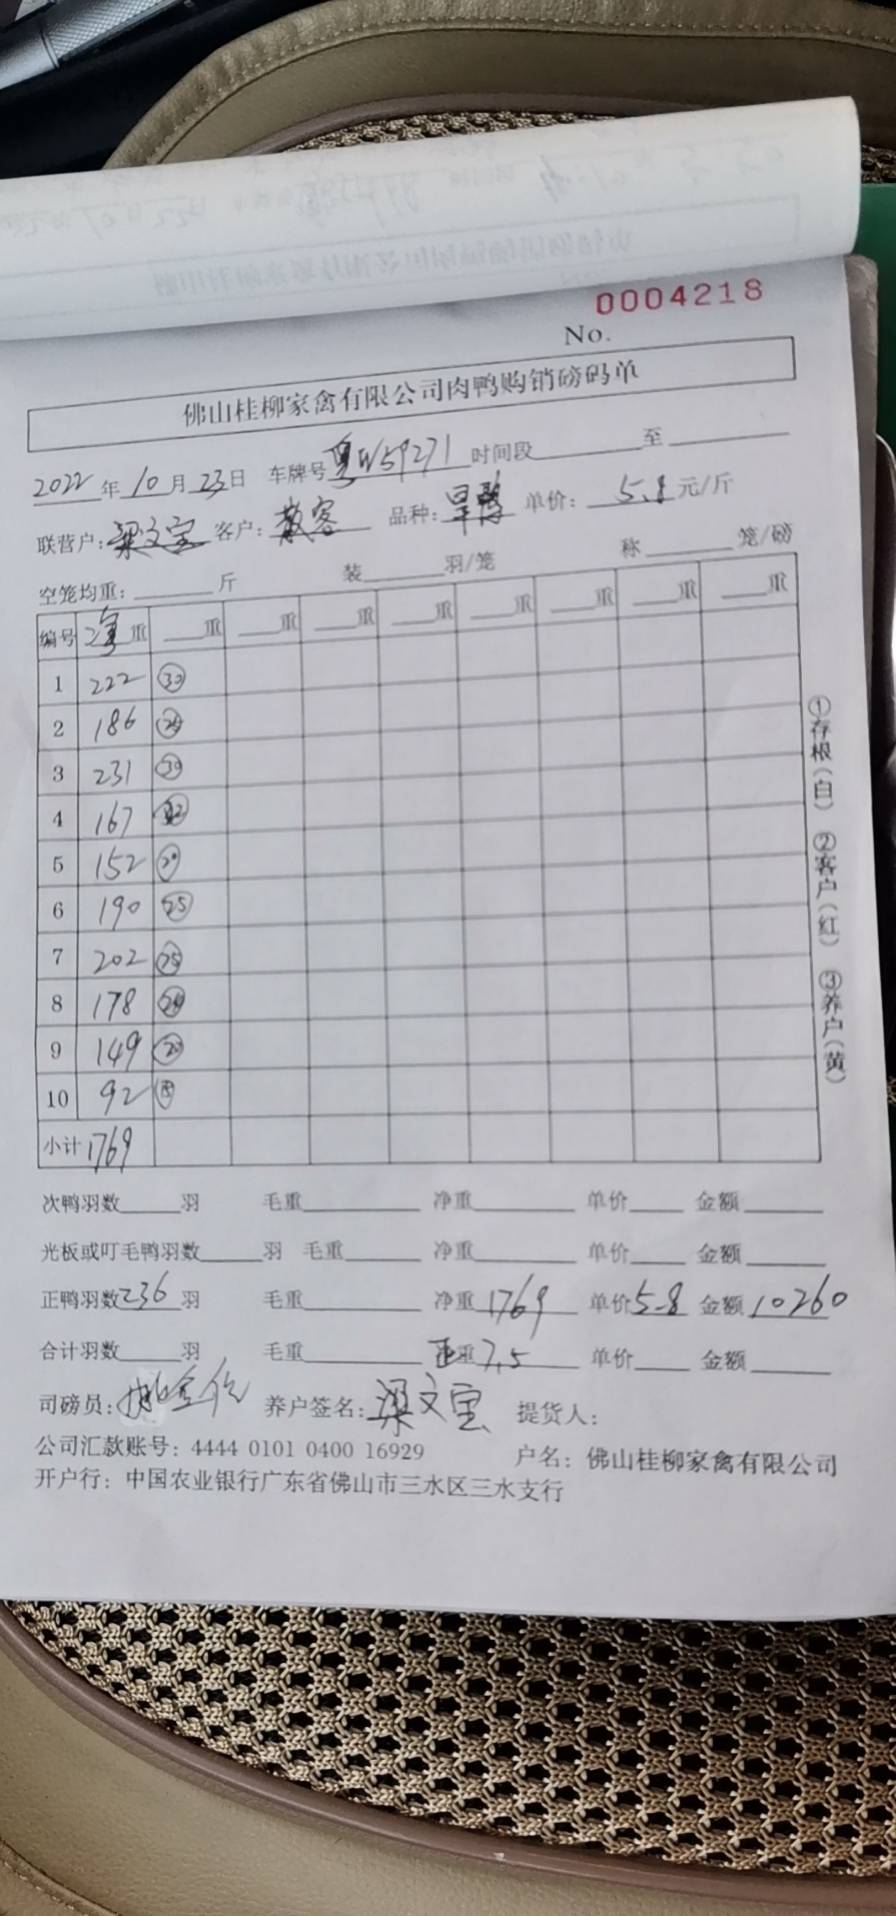 0004218
No.
佛山桂柳家禽有限公司肉鸭购销磅码单
2022 年 10 月 23 日 车牌号 粤W59271 时间段 至
联营户: 梁文宝 客户: 散客 品种: 旱鸭 单价: 5.8 元/斤
空笼均重: 斤 装 羽/笼 称 笼/磅
编号 净重 重 重 重 重 重 重 重 重
1 222 30
2 186 25
3 231 30
4 167
5 152 20
6 190 25
7 202 25
8 178
9 149 20
10 92
小计 1769
①存根(白) ②客户(红) ③养户(黄)
次鸭羽数 羽 毛重 净重 单价 金额
光板或叮毛鸭羽数 羽 毛重 净重 单价 金额
正鸭羽数 236 羽 毛重 净重 1769 单价 5.8 金额 10260
合计羽数 羽 毛重 重 7.5 单价 金额
司磅员: 养户签名: 梁文宝 提货人:
公司汇款账号: 4444 0101 0400 16929 户名: 佛山桂柳家禽有限公司
开户行: 中国农业银行广东省佛山市三水区三水支行